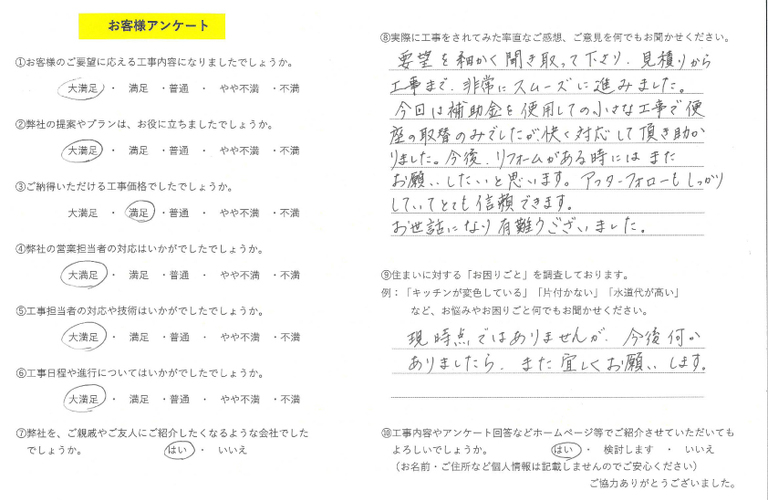 お客様アンケート
①お客様のご要望に応える工事内容になりましたでしょうか。
大満足 ・ 満足 ・普通 ・ やや不満 ・不満
②弊社の提案やプランは、お役に立ちましたでしょうか。
大満足 ・ 満足 ・普通 ・ やや不満 ・不満
③ご納得いただける工事価格でしたでしょうか。
大満足 ・ 満足 ・普通 ・ やや不満 ・不満
④弊社の営業担当者の対応はいかがでしたでしょうか。
大満足 ・ 満足 ・普通 ・ やや不満 ・不満
⑤工事担当者の対応や技術はいかがでしたでしょうか。
大満足 ・ 満足 ・普通 ・ やや不満 ・不満
⑥工事日程や進行についてはいかがでしたでしょうか。
大満足 ・ 満足 ・普通 ・ やや不満 ・不満
⑦弊社を、ご親戚やご友人にご紹介したくなるような会社でした
でしょうか。 はい ・ いいえ
⑧実際に工事をされてみた率直なご感想、ご意見を何でもお聞かせください。
要望を細かく聞き取って下さり、見積りから
工事まで、非常にスムーズに進みました。
今回は補助金を使用しての小さな工事で便
座の取替のみでしたが、快く対応して頂き助か
りました。今後、リフォームがある時にはまた
お願いしたいと思います。アフターフォローもしっかり
していてとても信頼できます。
お世話になり有難うございました。
⑨住まいに対する「お困りごと」を調査しております。
例：「キッチンが変色している」「片付かない」「水道代が高い」
など、お悩みやお困りごと何でもお聞かせください。
現時点ではありませんが、今後何か
ありましたら、また宜しくお願いします。
⑩工事内容やアンケート回答などホームページ等でご紹介させていただいても
よろしいでしょうか。 はい ・ 検討します ・ いいえ
（お名前・ご住所など個人情報は記載しませんのでご安心ください）
ご協力ありがとうございました。